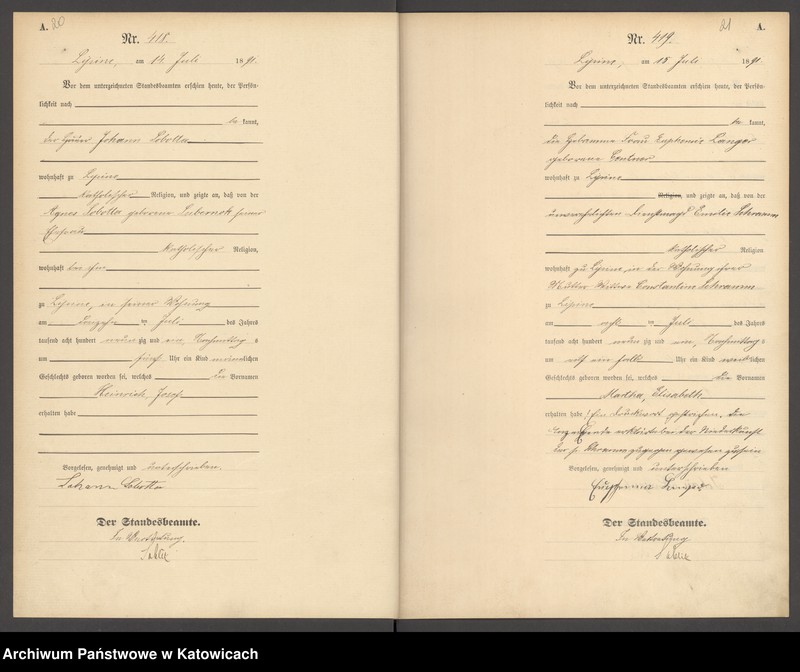 A. 20
Nr. 418.
Lipine, am 14 Juli 1891.
Vor dem unterzeichneten Standesbeamten erschien heute, der Persön-
lichkeit nach
be kannt,
der Häuer Johann Sobotta
wohnhaft zu Lipine
katholischer Religion, und zeigte an, daß von der
Agnes Sobotta geborene seiner
Ehefrau
katholischer Religion,
wohnhaft bei ihm
zu Lipine, in seiner Wohnung
am ten Juli des Jahres
tausend acht hundert neun zig und ein, Nachmittag s
um fünf Uhr ein Kind männlichen
Geschlechts geboren worden sei, welches die Vornamen
Heinrich, Josef
erhalten habe
Vorgelesen, genehmigt und unterschrieben.
Johann Sobotta
Der Standesbeamte.
In Vertretung.
21 A.
Nr. 419.
Lipine, am 15 Juli 1891.
Vor dem unterzeichneten Standesbeamten erschien heute, der Persön-
lichkeit nach
be kannt,
die Hebamme Frau Euphemie Langer
geborene
wohnhaft zu Lipine
Religion, und zeigte an, daß von der
unverehelichten Dienstmagd Emilie Schramm
katholischer Religion
wohnhaft zu Lipine, in der Wohnung ihrer
Mutter Wittwe Constantine Schramm
zu Lipine
am acht ten Juli des Jahres
tausend acht hundert neun zig und ein, Nachmittag s
um elf ein halb Uhr ein Kind weib lichen
Geschlechts geboren worden sei, welches die Vornamen
Martha, Elisabeth
erhalten habe! Ein Druckwort gestrichen. Die
Anzeigende erklärte bei der Niederkunft
der p. Schramm zugegen gewesen zu sein.
Vorgelesen, genehmigt und unterschrieben
Euphemia Langer
Der Standesbeamte.
In Vertretung
Archiwum Państwowe w Katowicach